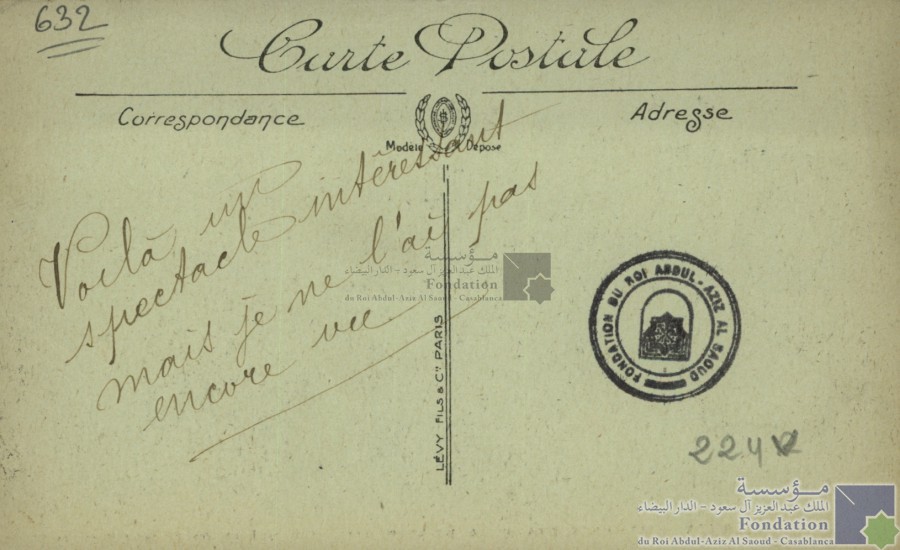 632
Carte Postale
Correspondance
Adresse
Modèle Déposé
Voilà un
spectacle intéressant
mais je ne l'ai pas
encore vu
LÉVY FILS & Cie PARIS
مؤسسة
الملك عبد العزيز آل سعود - الدار البيضاء
Fondation
du Roi Abdul-Aziz Al Saoud - Casablanca
FONDATION DU ROI ABDUL-AZIZ AL SAOUD
مؤسسة
الملك عبد العزيز آل سعود - الدار البيضاء
Fondation
du Roi Abdul-Aziz Al Saoud - Casablanca